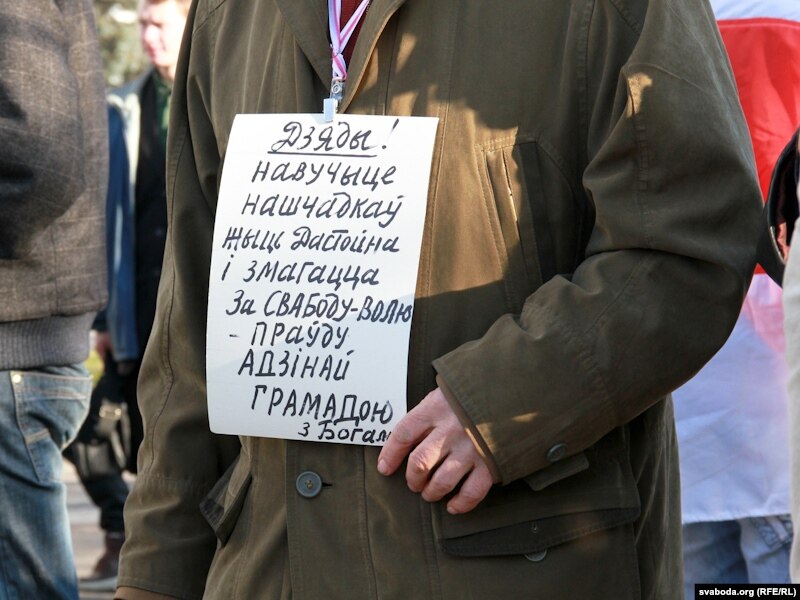 Дзяды!
навучыце
нашчадкаў
жыць Дастойна
і змагацца
За СВАБОДУ-ВОЛЮ
- ПРАЎДУ
АДЗІНАЙ
ГРАМАДОЮ
з Богам
svaboda.org (RFE/RL)